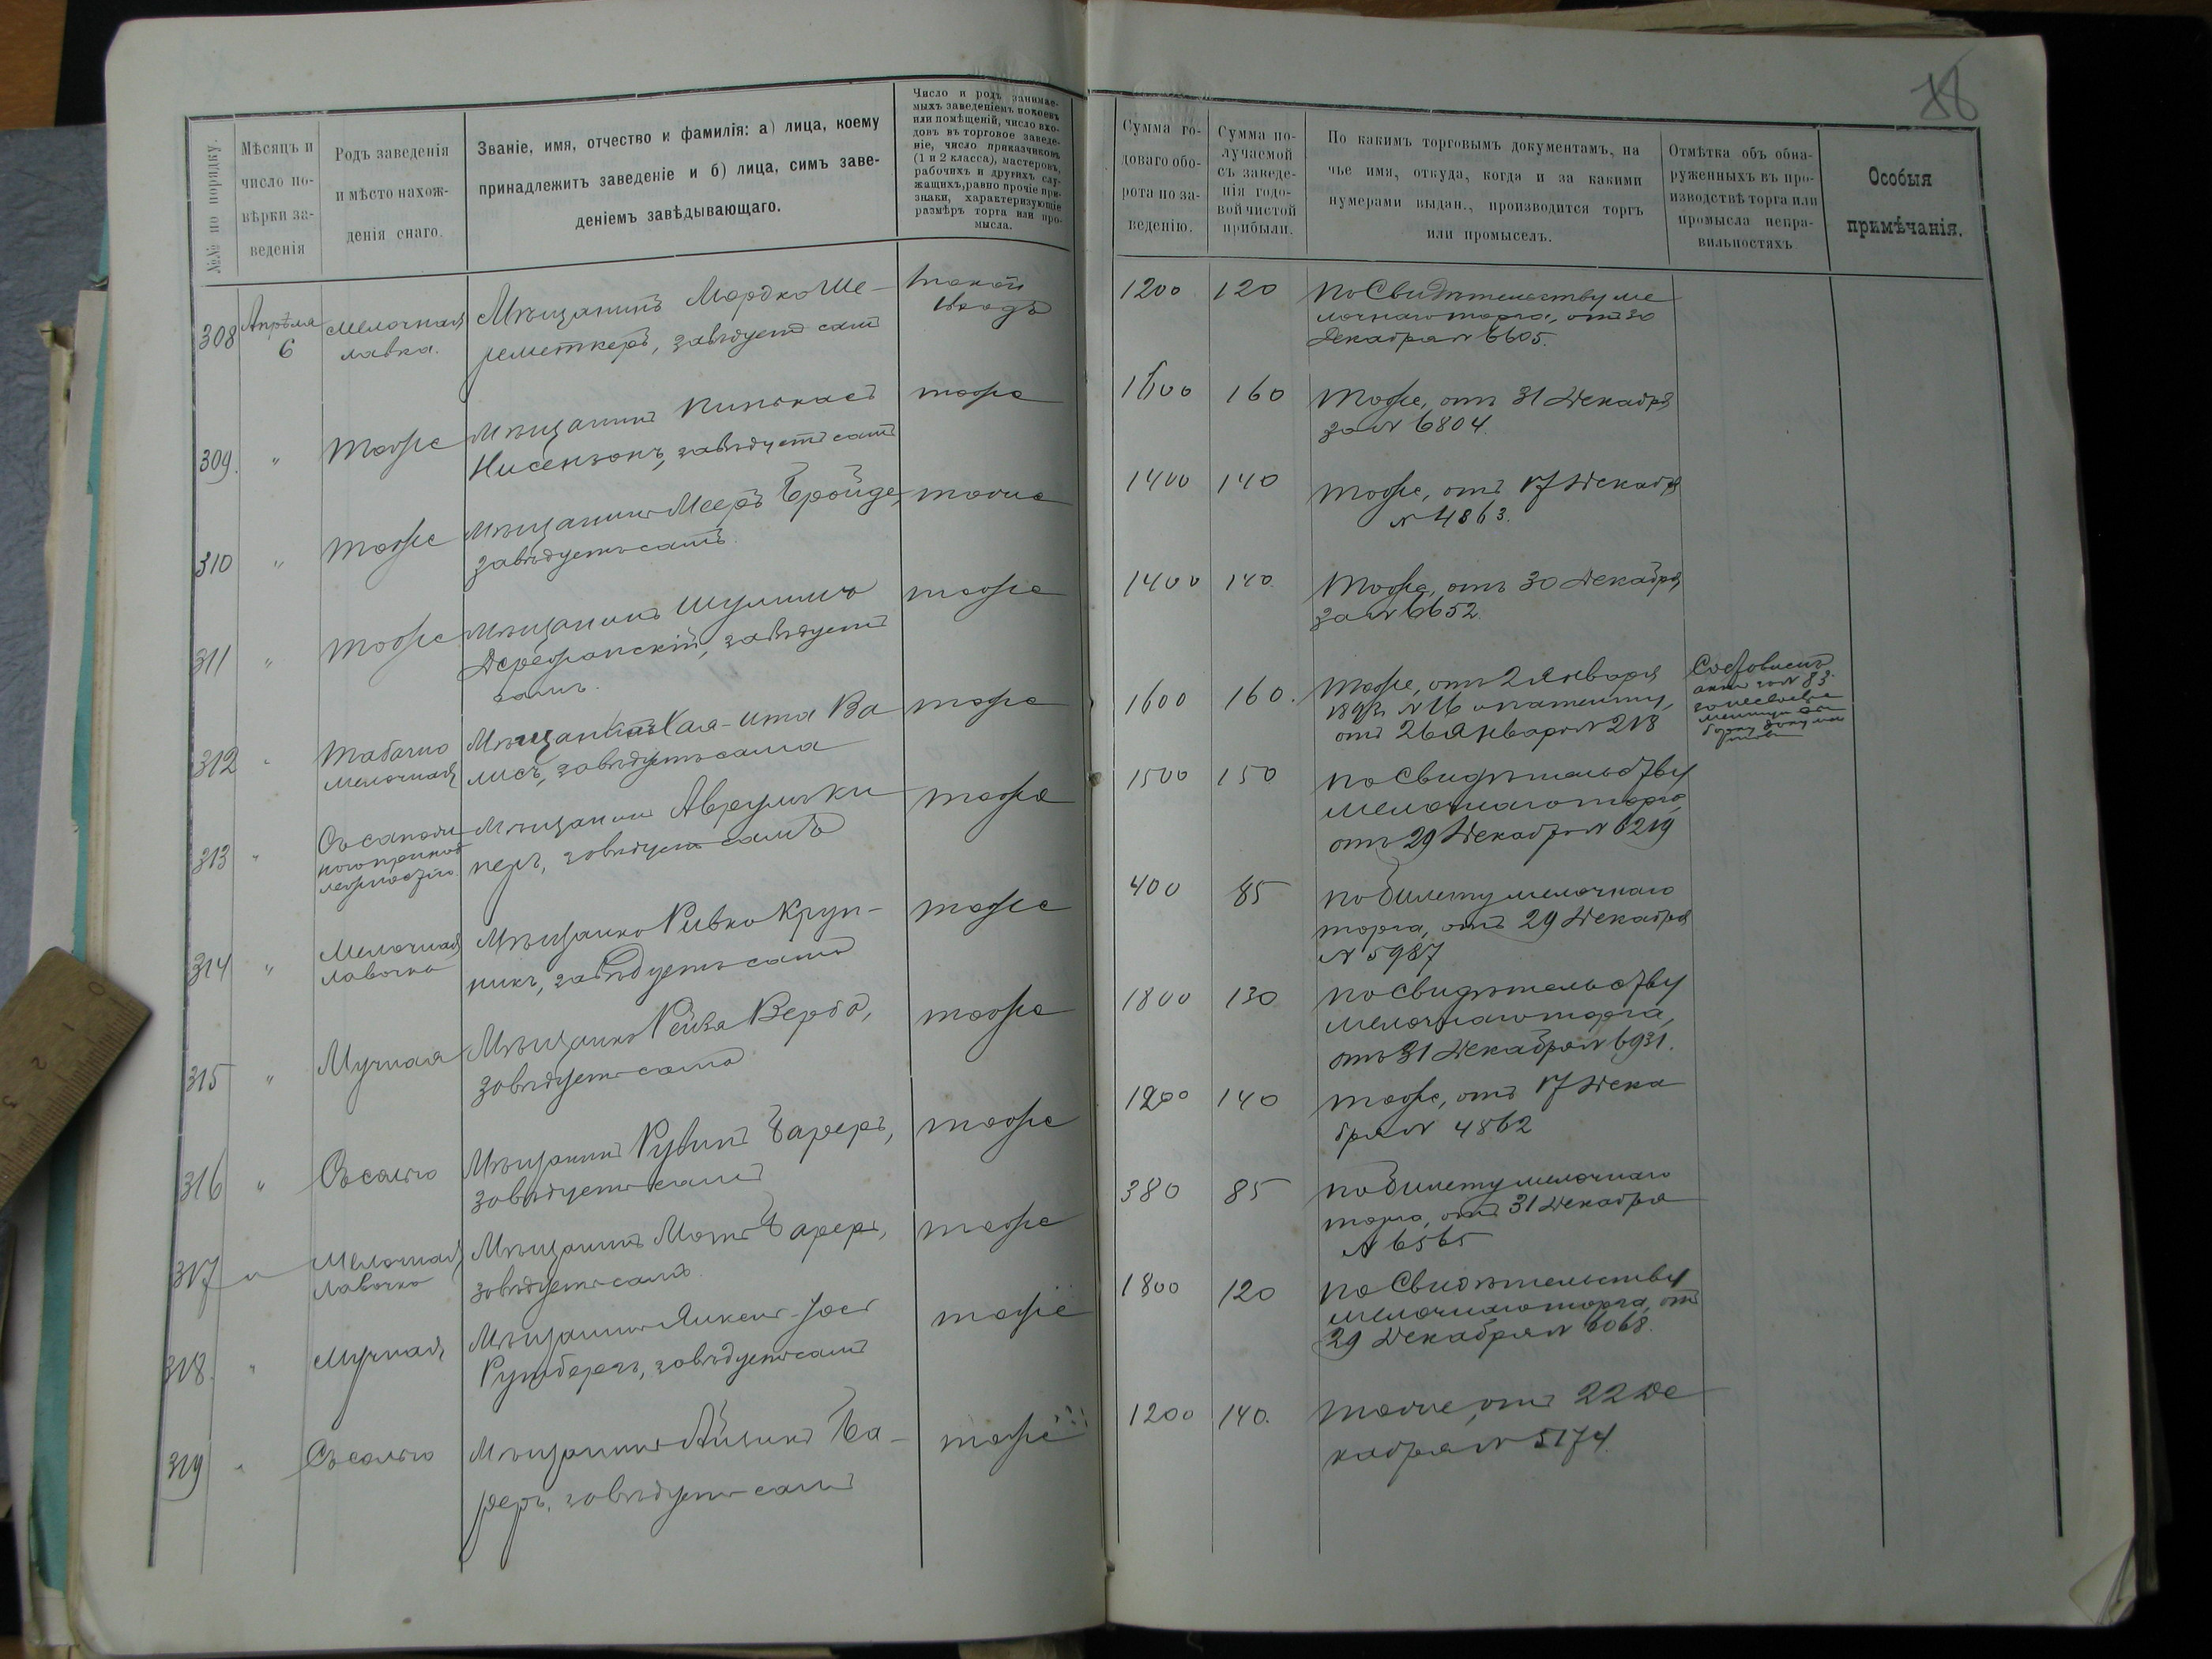 88
№№ по порядку.
Мѣсяцъ и
число по-
вѣрки за-
веденія
Родъ заведенія
и мѣсто нахож-
денія онаго.
Званіе, имя, отчество и фамилія: а) лица, коему
принадлежитъ заведеніе и б) лица, симъ заве-
деніемъ завѣдывающаго.
Число и родъ занимае-
мыхъ заведеніемъ покоевъ
или помѣщеній, число вхо-
довъ въ торговое заведе-
ніе, число приказчиковъ
(1 и 2 класса), мастеровъ,
рабочихъ и другихъ слу-
жащихъ, равно прочіе при-
знаки, характеризующіе
размѣръ торга или про-
мысла.
Сумма го-
доваго обо-
рота по за-
веденію.
Сумма по-
лучаемой
съ заведе-
нія годо-
вой чистой
прибыли.
По какимъ торговымъ документамъ, на
чье имя, откуда, когда и за какими
нумерами выдан., производится торгъ
или промыселъ.
Отмѣтка объ обна-
руженныхъ въ про-
изводствѣ торга или
промысла непра-
вильностяхъ
Особыя
примѣчанія.
308 Апрѣля 6
мелочная
лавка.
Мѣщанинъ Мордко Ше-
реметкеръ, завѣдуетъ самъ
входъ
1200 120
по Свидѣтельству ме
лочнаго торга, отъ 30
Декабря № 6605.
309. "
тоже
Мѣщанинъ Пинкасъ
Нисензонъ, завѣдуетъ самъ
тоже
1600 160
тоже, отъ 31 Декабря
за № 6804.
310 "
тоже
Мѣщанинъ Мееръ Бройде,
завѣдуетъ самъ.
тоже
1400 140
тоже, отъ 17 Декабря
№ 4863.
311 "
тоже
Мѣщанинъ
завѣдуетъ
самъ.
тоже
1400 140
тоже, отъ 30 Декабря
за № 6652
312 "
Табачно
мелочная
Мѣщанка Хая-Ита Ва
лисъ, завѣдуетъ сама
тоже
1600 160.
тоже, отъ 2 Января
№ 16 и патенту,
отъ 26 Января № 218
актъ за № 83.
313 "
Мѣщанинъ Аврумъ Ки
перъ, завѣдуетъ самъ
тоже
1500 150
по Свидѣтельству
мелочнаго торга,
отъ 29 Декабря № 6219
314 "
Мелочная
лавочка
Мѣщанка Ривка Круп-
никъ, завѣдуетъ сама
тоже
400 85
по билету мелочнаго
торга, отъ 29 Декабря
№ 5987
315 "
Мучная
Мѣщанка Рейза Верба,
завѣдуетъ сама
тоже
1800 130
по свидѣтельству
мелочнаго торга,
отъ 31 Декабря № 6931.
316 "
Съ солью
Мѣщанинъ Рувинъ Бареръ,
завѣдуетъ самъ
тоже
1200 140
тоже, отъ 17 Дека
бря № 4862
317 "
Мелочная
лавочка
Мѣщанинъ Бареръ,
завѣдуетъ самъ.
тоже
380 85
по билету мелочнаго
торга, отъ 31 Декабря
№ 6565
318. "
Мучная
Мѣщанинъ
завѣдуетъ самъ
тоже
1800 120
по Свидѣтельству
мелочнаго торга, отъ
29 Декабря № 6068.
319 "
Съ солью
Мѣщанинъ Айзикъ Ба-
реръ, завѣдуетъ самъ
тоже
1200 140.
тоже, отъ 22 Де
кабря № 5174.